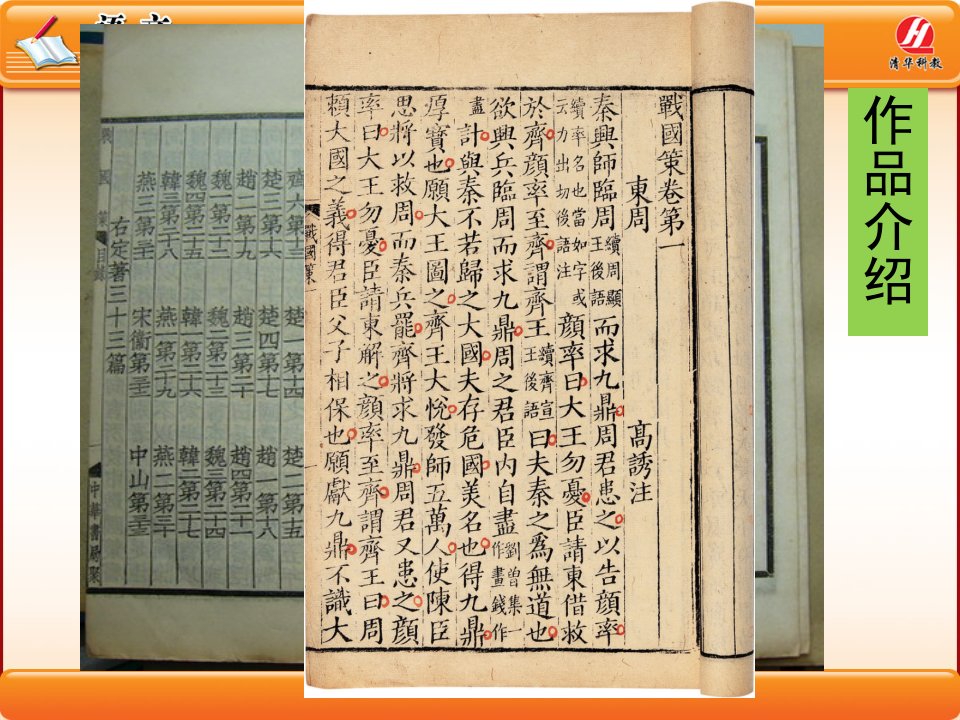 语文
清华科教
作品介绍
戰國策卷第一
東周
高誘注
秦興師臨周而求九鼎周君患之以告顔率
續周顯
王後語
續率名也當如字或
云力出切後語注
於齊顔率至齊謂齊王曰夫秦之爲無道也
顔率曰大王勿憂臣請東借救
續齊宣
王後語
欲興兵臨周而求九鼎周之君臣内自盡
劉曾集一
作畫錢作
盡
計與秦不若歸之大國夫存危國美名也得九鼎
厚寳也願大王圖之齊王大悅發師五萬人使陳臣
思將以救周而秦兵罷齊將求九鼎周君又患之顔
率曰大王勿憂臣請東解之顔率至齊謂齊王曰周
賴大國之義得君臣父子相保也願獻九鼎不識大
戰國策
一
楚一第十四
楚二第十五
楚三第十六
楚四第十七
趙一第十八
趙二第十九
趙三第二十
趙四第二十一
魏一第二十二
魏二第二十三
魏三第二十四
魏四第二十五
韓一第二十六
韓二第二十七
韓三第二十八
燕一第二十九
燕二第三十
燕三第三十一
宋衞第三十二
中山第三十三
右定著三十三篇
中華書局聚